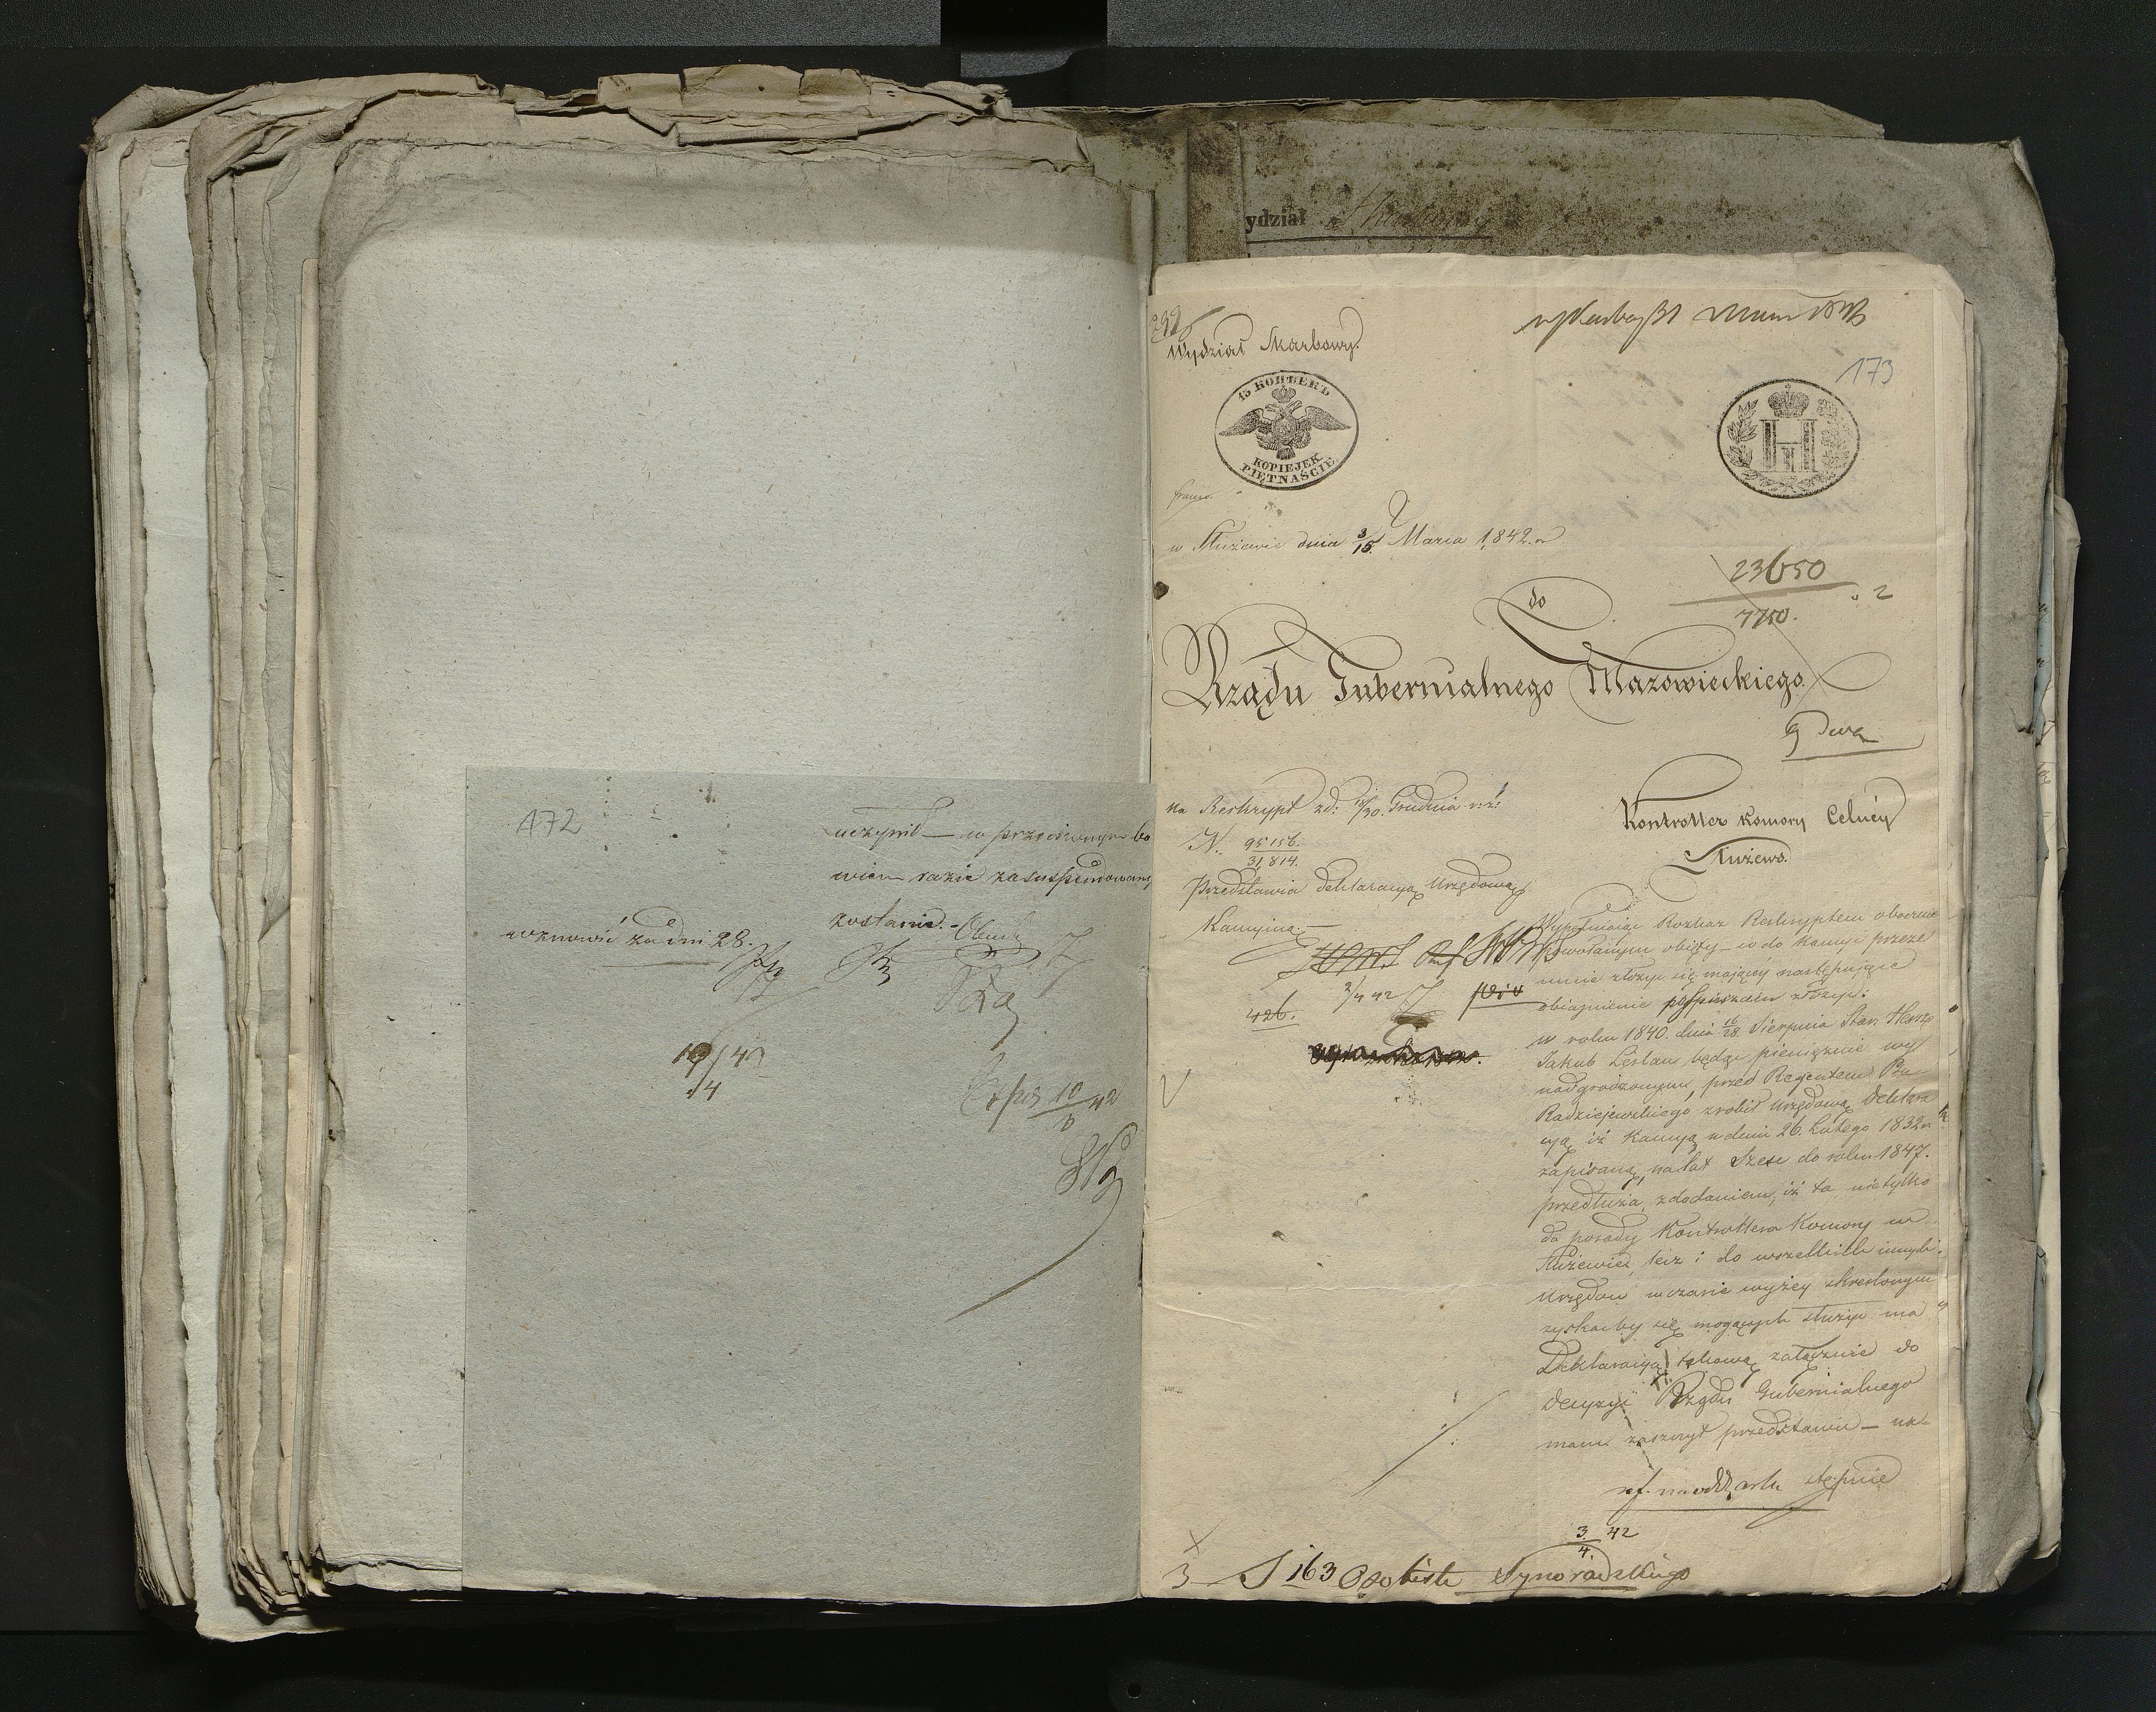 172
uczynił — w przeciwnym bo
wiem razie zasuspendowany
zostanie.
wznowić za dni 28.
Exped 10/3 42
ydział Skarbowy
Wydział Skarbowy.
173
15 КОПѢЕКЪ
KOPIEJEK
PIĘTNAŚCIE
H
I
franco.
w Służewie dnia 3/15 Marca 1842 r
23650
7750.
do
Rządu Gubernialnego Mazowieckiego.
Kontroller Komory Celnéy
Służewo.
na Reskrypt z d: 18/30. Grudnia r: z:
N. 95156.
31,814.
Przedstawia deklaracyą Urzędową
Kaucyiną. —
426.
Wypełniając Rozkaz Reskryptem obocznie
powołanym objęty — w do kaucyi przeze
mnie złożyć się mającéy następujące
obiaśnienie pospieszam złożyć:
w roku 1840. dnia 16/28 Sierpnia Star:
Jakub Lesław będąc pieniężnie wy
nadgrodzonym, przed Regentem Ptu
Radziejewskiego zrobił urzędową Deklara
cyą iż Kaucyą w dniu 26. Lutego 1832 r
zapisaną, na lat Sześć do roku 1847.
przedłuża, z dodaniem, iż ta nietylko
do posady Kontrollera Komory w
Służewie, lecz i do wszelkich innych
Urzędów w czasie wyżéy skreślonym
zyskaćby się mogących służyć ma
Deklaracyą takową załącznie do
decyzyi Rządu Gubernialnego
mam zaszczyt przedstawić — na-
stępnie
3/4 42
J 163 Osobiste